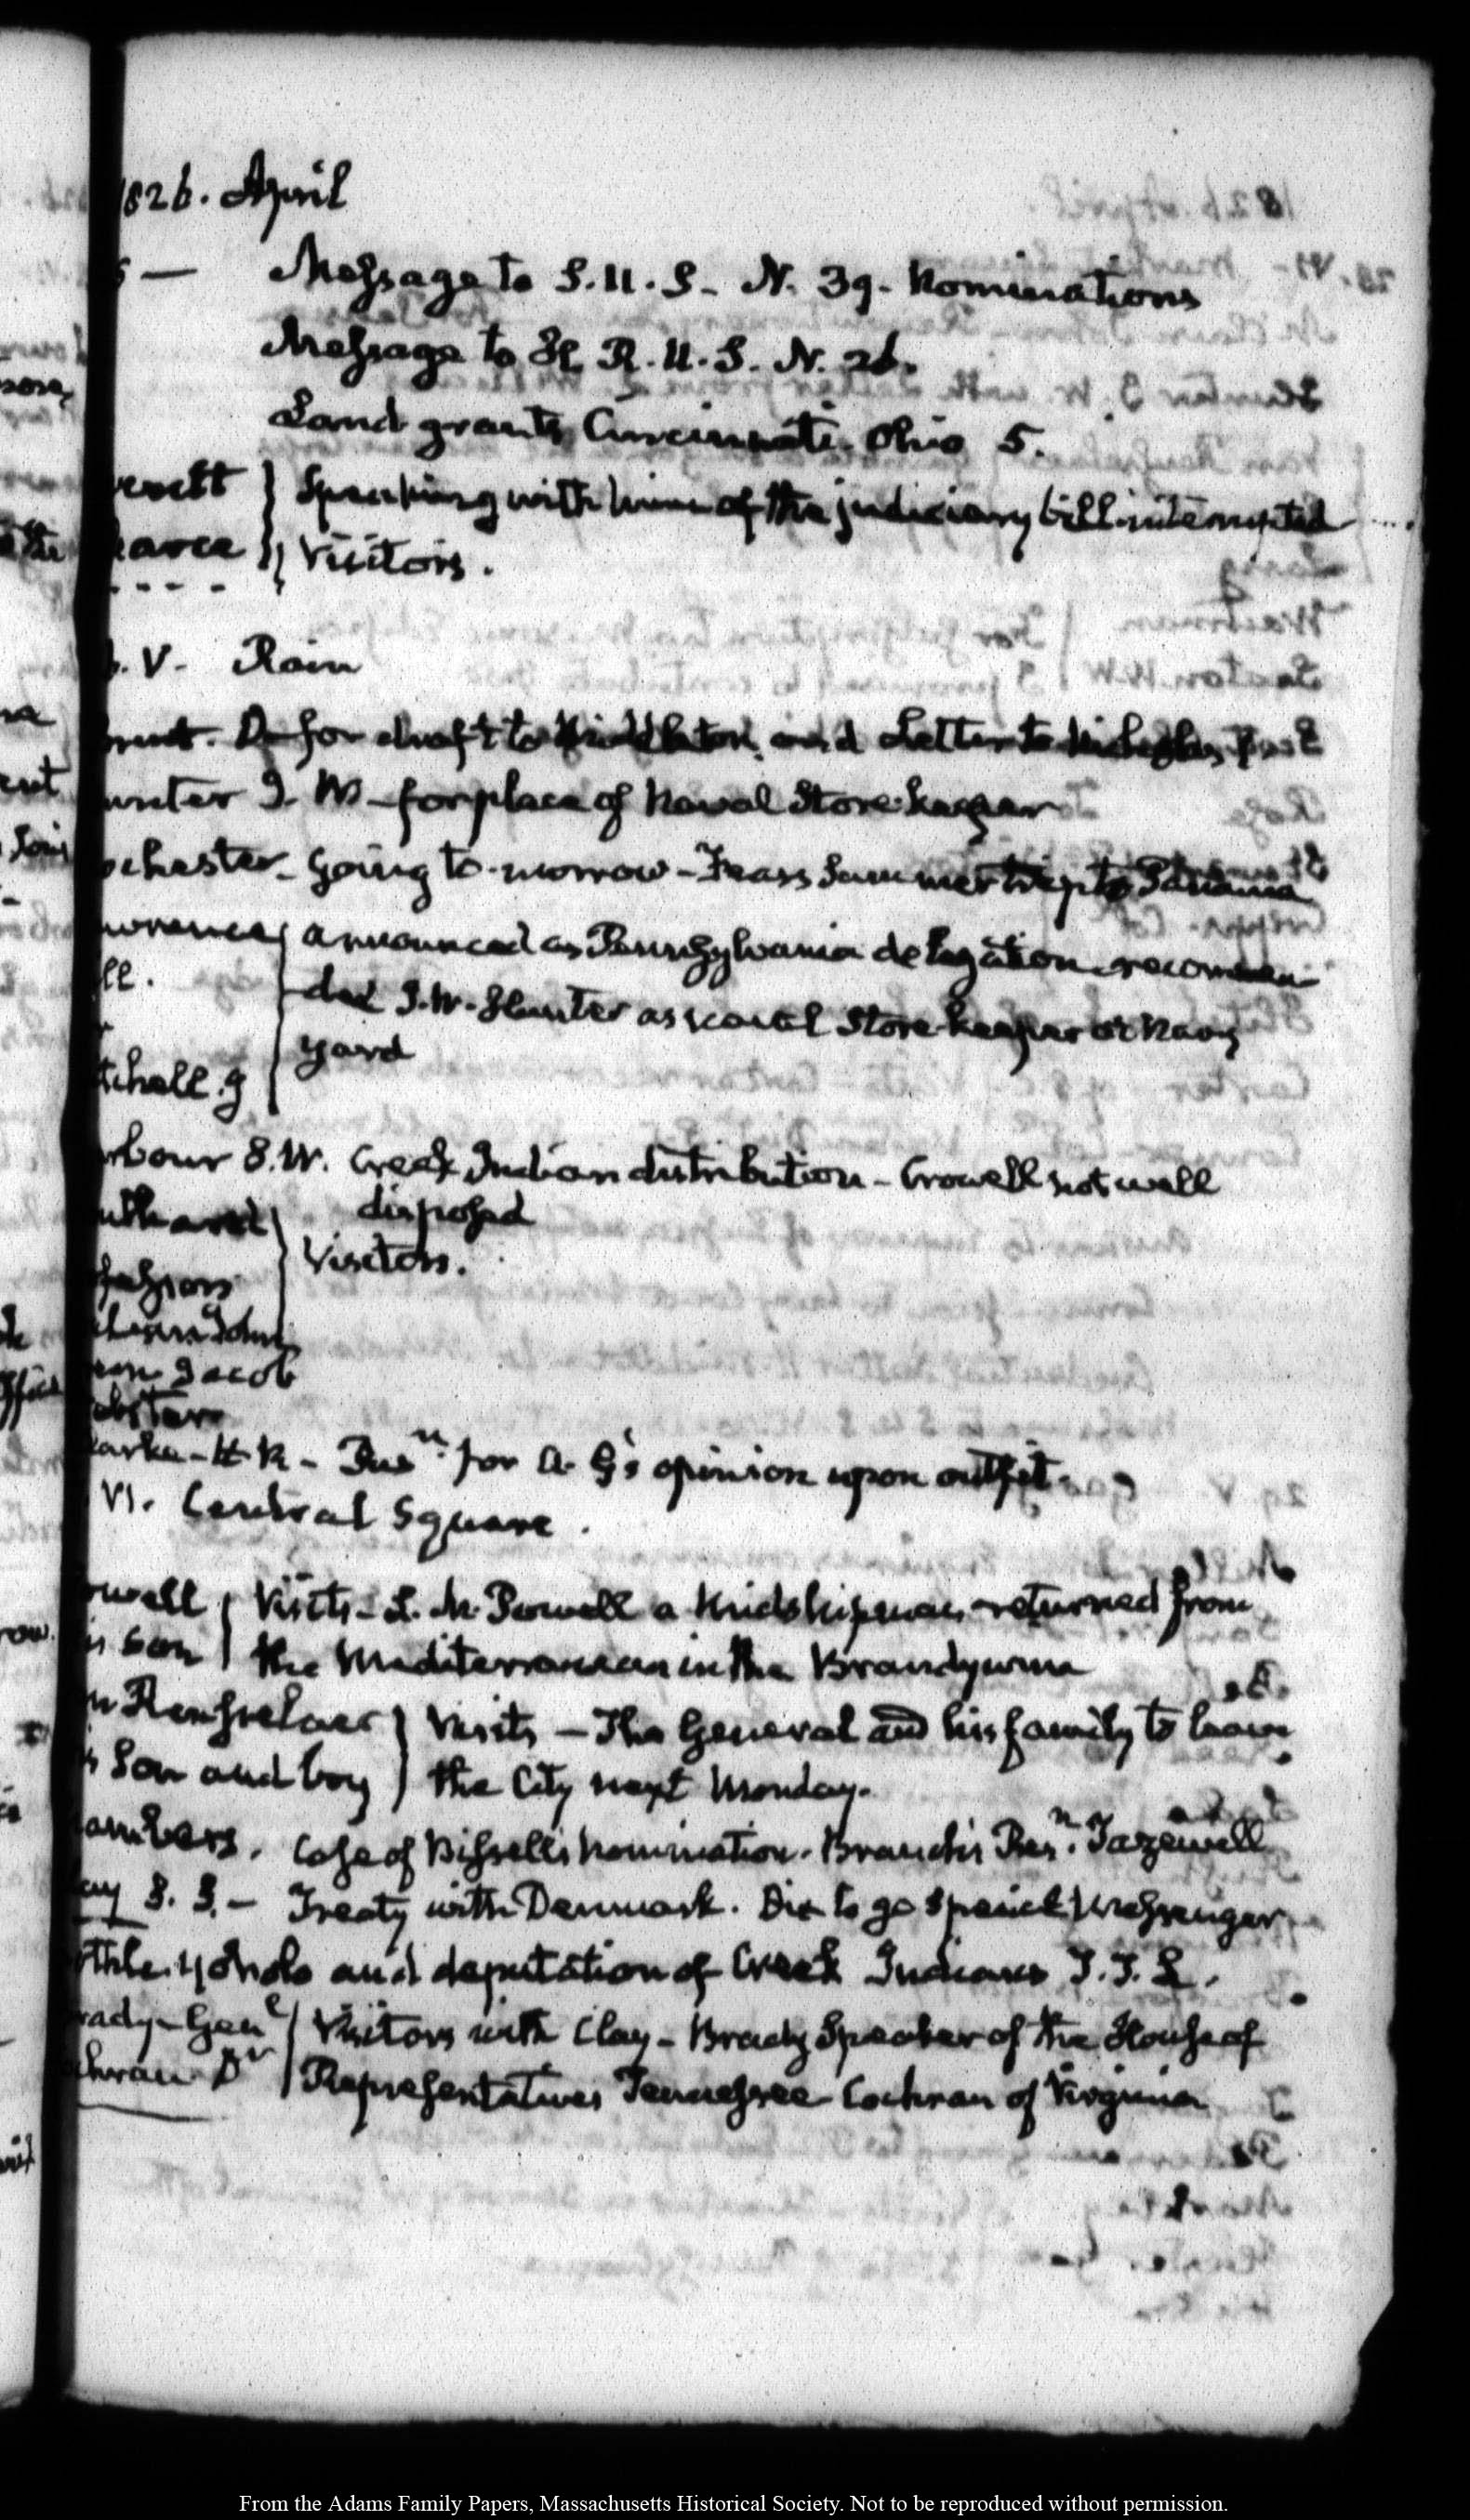 1826. April
5 — Message to S.U.S - N. 39 - Nominations
Message to H. R. U. S. N. 26.
Land grants Cincinnati Ohio 5.
verett } Speaking with him of the judiciary bill interrupted
earce } Visitors.
. V. Rain
for draft to Middleton and Letter to
unter J. W - for place of Naval Store-keeper
ochester - Going to-morrow - Fears Summer trip to Panama
wrence } announced as Pennsylvania delegation recommen
ll. } ded J. W. Hunter as naval Store-keeper at Navy
tchell. J } yard
rbour S.W. Creek Indian distribution - Crowell not well
disposed
uthard } Visitors.
John
Jacob
ebster
larke - H. R - for A. G's opinion upon outfit.
VI. Central Square.
owell } Visits - L. M. Powell a Midshipman returned from
is Son } the Mediterranean in the Brandywine
n Rensselaer } Visits — The General and his family to leave
is Son and boy } the City next Monday.
ambers. Case of Bissell's nomination. Branch's Resn. Tazewell
ay S. S. - Treaty with Denmark. Dix to go Special Messenger
othle yoholo and deputation of Creek Indians T. I. L.
rady - Genl } Visitors with Clay - Brady Speaker of the House of
chran Dr } Representatives Tennessee - Cochran of Virginia
From the Adams Family Papers, Massachusetts Historical Society. Not to be reproduced without permission.